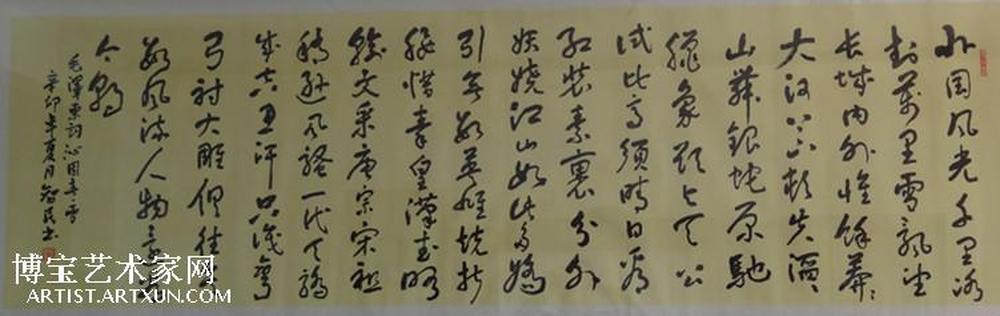 北国风光千里冰
封萬里雪飘望
长城内外惟餘莽々
大河上下顿失滔々
山舞銀蛇原馳
臘象欲与天公
试比高须晴日看
红装素裹分外
妖娆江山如此多嬌
引無数英雄竞折
腰惜秦皇漢武略
输文采唐宗宋祖
稍遜风骚一代天骄
成吉思汗只识彎
弓射大雕俱往矣
数风流人物还看
今朝
毛澤東詞沁园春雪
辛卯年夏月 民书
博宝艺术家网
ARTIST.ARTXUN.COM